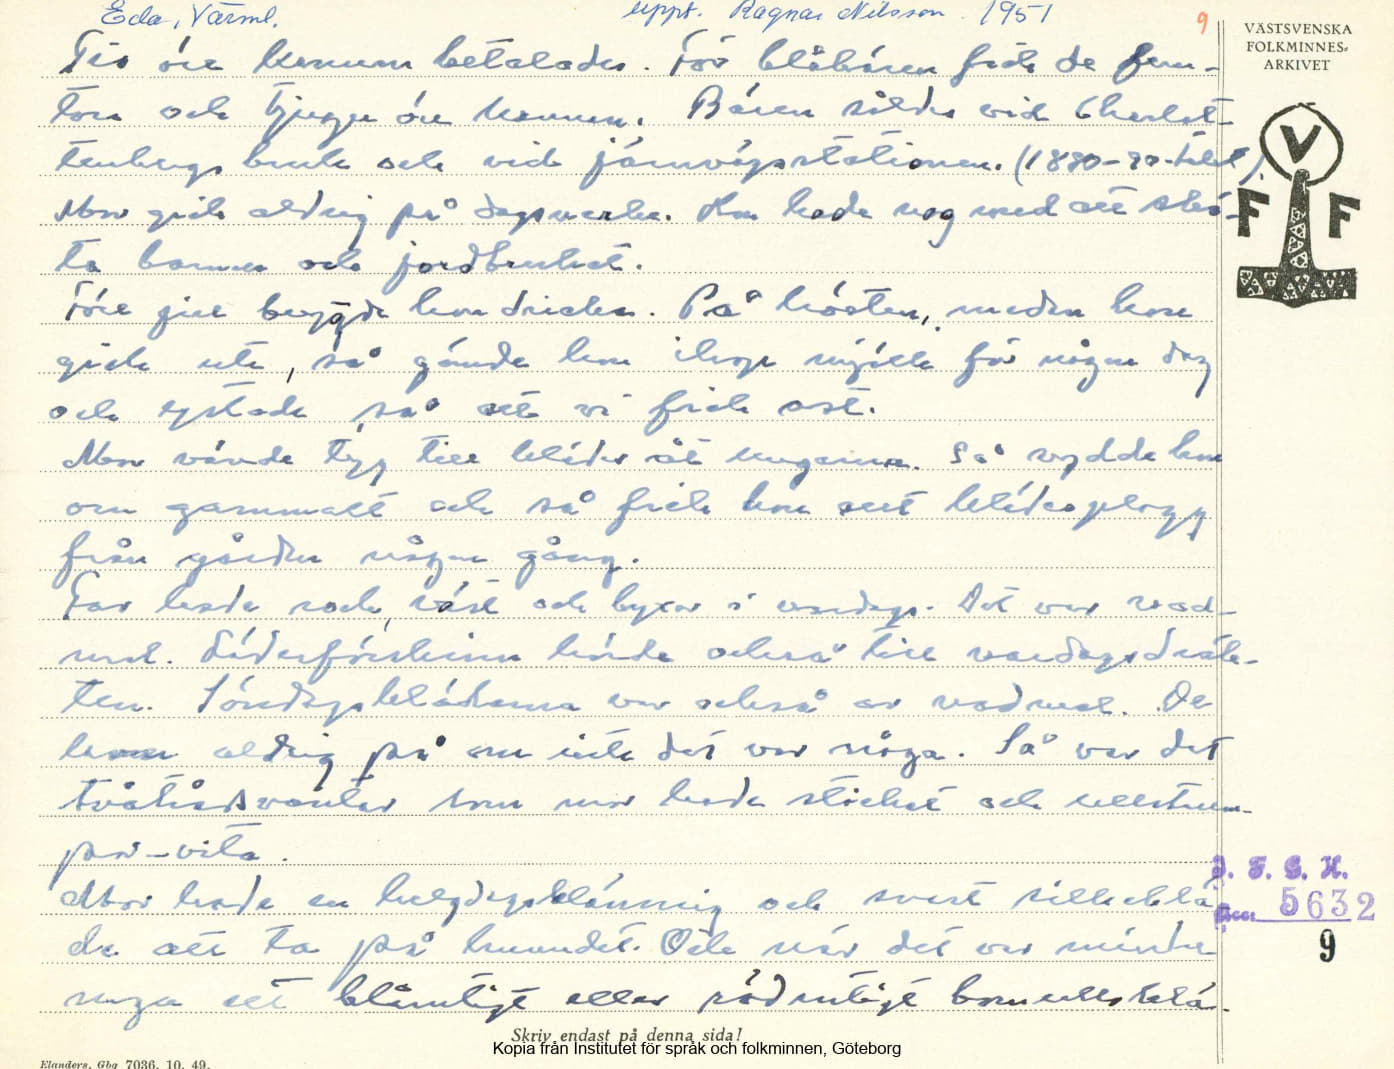 Eda, Värml. uppt. Ragnar Nilsson. 1951
9
VÄSTSVENSKA
FOLKMINNES-
ARKIVET
V
F F
Tio öre kannan betalades. För blåbären fick de fem-
ton och tjugu öre kannan. Bären såldes vid Charlot-
tenbergs bruk och vid järnvägsstationen. (1880-90-talet).
Mor gick aldrig på dagsverke. Hon hade nog med att skö-
ta barnen och jordbruket.
Före jul bryggde hon dricka. På hösten, medan kon
gick ute, så gömde hon ihop mjölk för någon dag
och ystade så att vi fick ost.
Mor vävde tyg till kläder åt ungarna. Så sydde hon
om gammalt och så fick hon ett klädesplagg
från gården någon gång.
Far hade rock, väst och byxor i vardags. Det var vad-
mal. Läderförskinn hörde också till vardagsdräk-
ten. Söndagskläderna var också av vadmal. De
kom aldrig på om inte det var noga. Så var det
tvåtrådsvantar som mor hade stickat och ullstrum-
por - vita.
Mor hade en helgdagsklänning och svart silkeklä-
de att ta på huvudet. Och när det var mindre
noga ett blårutigt eller rödrutigt bomullsklä-
J. F. G. H.
Acc. 5632
9
Skriv endast på denna sida!
Kopia från Institutet för språk och folkminnen, Göteborg
Elanders, Gbg 7036. 10. 49.